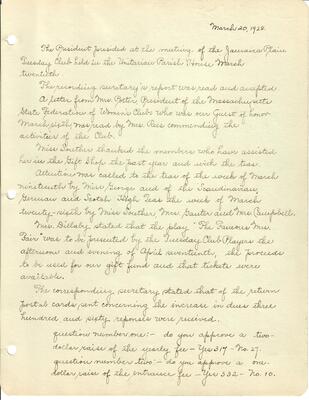 March 20, 1928.
The President presided at the meeting of the Jamaica Plain
Tuesday Club held in the Unitarian Parish House March
twentieth.
The recording secretary's report was read and accepted.
A letter from Mrs. Poter, President of the Massachusetts
State Federation of Women's Clubs who was our Guest of honor
March sixth was read by Mrs. Rees commending the
activities of the Club.
Miss Souther thanked the members who have assisted
her in the Gift Shop the past year and with the teas.
Attention was called to the teas of the week of March
nineteenth by Miss George and of the Scandinavian,
German and Scotch High Teas the week of March
twenty-sixth by Miss Souther, Mrs. Sauter and Mrs. Campbell.
Mrs. Billaby stated that the play "The Famous Mrs.
Fair" was to be presented by the Tuesday Club Players the
afternoon and evening of April seventeenth, the proceeds
to be used for our gift fund and that tickets were
available.
The corresponding secretary stated that of the return
postal cards, sent concerning the increase in dues three
hundred and sixty, reponses were received.
question number one:- do you approve a two-
dollar raise of the yearly fee - Yes 317 - No. 27.
question number two:- do you approve a one-
dollar raise of the entrance fee - Yes 332 - No. 10.